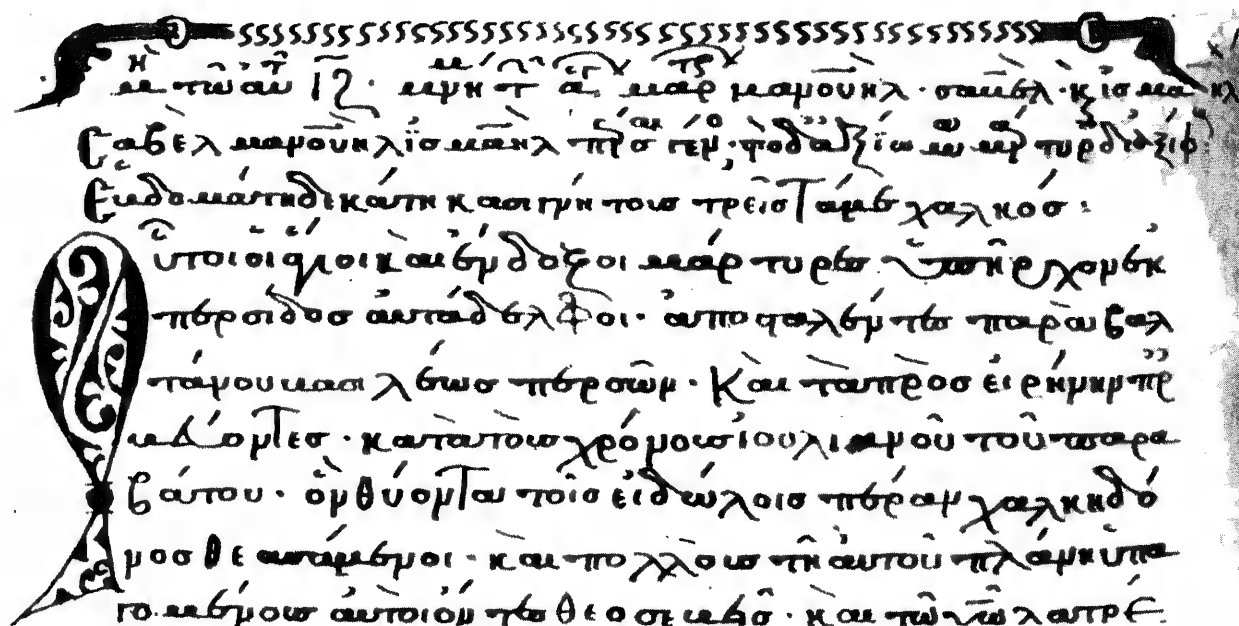 τῶ αὐτῶ ΙΖ· μνήμη τ ἁγ μαρ μανουὴλ· σαβὲλ· κ ἰσμαὴλ
Σαβὲλ μανουὴλ ἰσμαὴλ πρὸς
Ἑβδομάτη δεκάτη κασιγνήτους τρεῖς τάμε χαλκός:
οὗτοι οἱ ἅγιοι καὶ ἔνδοξοι μάρτυρες ὑπῆρχον ἐκ
περσίδος αὐτάδελφοι· ἀποσταλέντες παρὰ βαλ
τάνου βασιλέως περσῶν· Καὶ τὰ πρὸς εἰρήνην πρ
βεύοντες· κατὰ τοὺς χρόνους ἰουλιανοῦ τοῦ παρα
βάτου· ὃν θύοντα τοῖς εἰδώλοις πέραν χαλκηδό
νος θεασάμενοι· καὶ πολλοὺς τῆ αὐτοῦ πλάνη ὑπα
γομένους αὐτοὶ ὄντες θεοσεβεῖς· καὶ τῶ χῶ λατρεύ